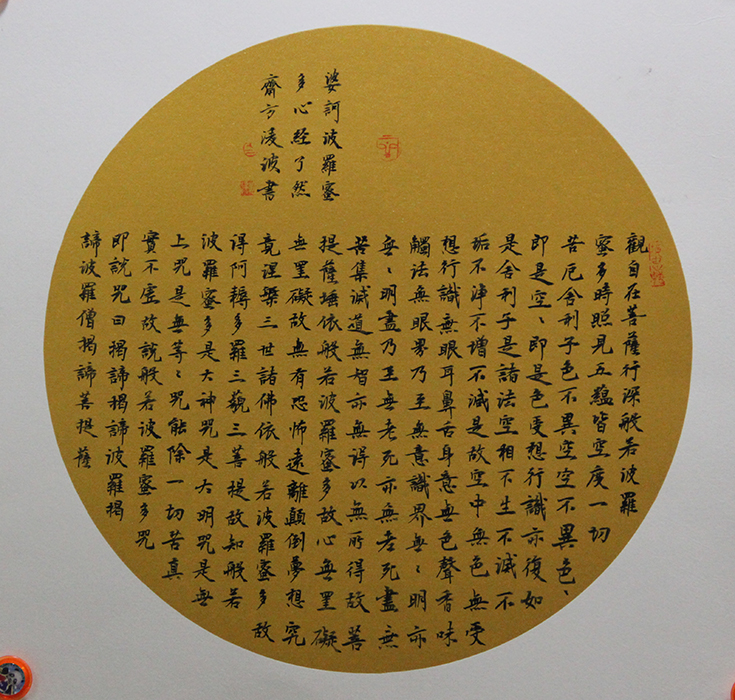 觀自在菩薩行深般若波羅
蜜多時照見五蘊皆空度一切
苦厄舍利子色不異空空不異色、
即是空、即是色受想行識亦復如
是舍利子是諸法空相不生不滅不
垢不淨不增不減是故空中無色無受
想行識無眼耳鼻舌身意無色聲香味
觸法無眼界乃至無意識界無、明亦
無、明盡乃至無老死亦無老死盡無
苦集滅道無智亦無得以無所得故菩
提薩埵依般若波羅蜜多故心無罣礙
無罣礙故無有恐怖遠離顛倒夢想究
竟涅槃三世諸佛依般若波羅蜜多故
得阿耨多羅三藐三菩提故知般若
波羅蜜多是大神咒是大明咒是無
上咒是無等、咒能除一切苦真
實不虛故說般若波羅蜜多咒
即說咒曰揭諦揭諦波羅揭
諦波羅僧揭諦菩提薩
婆訶波羅蜜
多心經了然
齋方淩波書